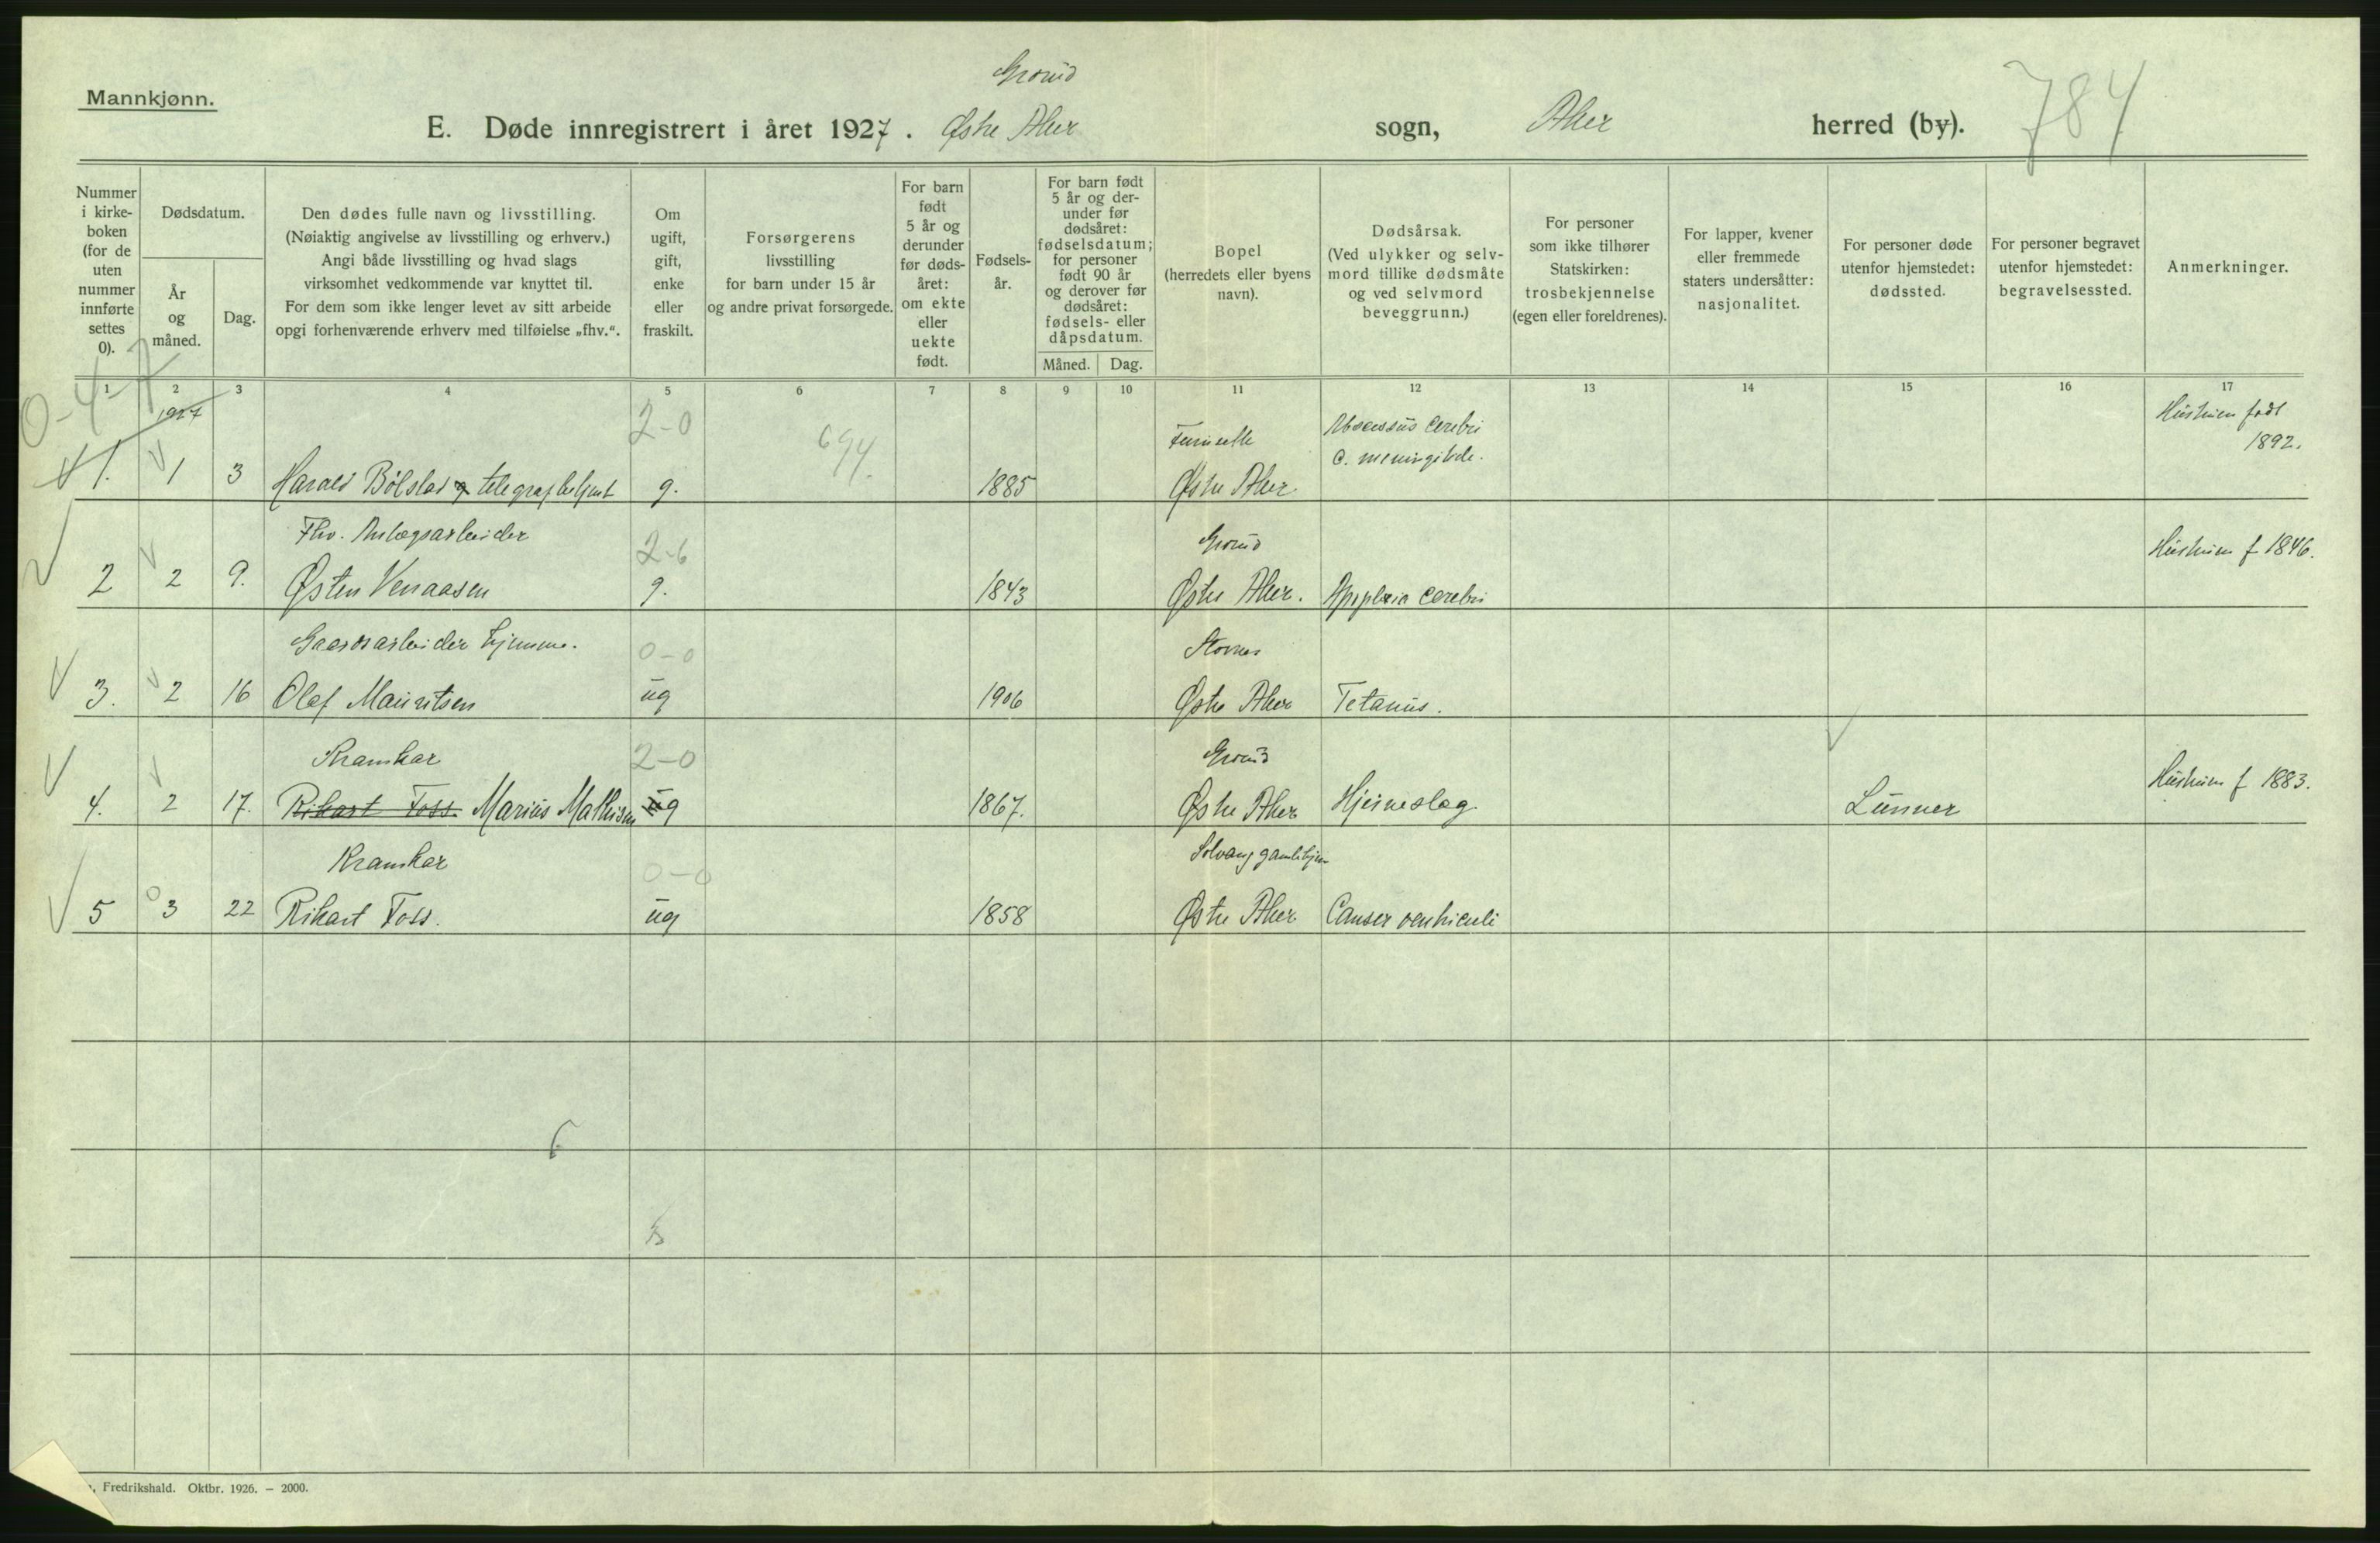 Mannkjønn.
Grorud
E. Døde innregistrert i året 1927. Østre Aker sogn, Aker herred (by).
784
Nummer i kirke-boken (for de uten nummer innførte settes 0).
Dødsdatum.
År og måned.
Dag.
Den dødes fulle navn og livsstilling.
(Nøiaktig angivelse av livsstilling og erhverv.)
Angi både livsstilling og hvad slags
virksomhet vedkommende var knyttet til.
For dem som ikke lenger levet av sitt arbeide
opgi forhenværende erhverv med tilføielse „fhv.“.
Om ugift, gift, enke eller fraskilt.
Forsørgerens
livsstilling
for barn under 15 år
og andre privat forsørgede.
For barn født 5 år og derunder før døds-året: om ekte eller uekte født.
Fødsels-år.
For barn født
5 år og der-
under før
dødsåret:
fødselsdatum;
for personer
født 90 år
og derover før
dødsåret:
fødsels- eller
dåpsdatum.
Måned. Dag.
Bopel
(herredets eller byens
navn).
Dødsårsak.
(Ved ulykker og selv-
mord tillike dødsmåte
og ved selvmord
beveggrunn.)
For personer
som ikke tilhører
Statskirken:
trosbekjennelse
(egen eller foreldrenes).
For lapper, kvener
eller fremmede
staters undersåtter:
nasjonalitet.
For personer døde
utenfor hjemstedet:
dødssted.
For personer begravet
utenfor hjemstedet:
begravelsessted.
Anmerkninger.
1 2 3 4 5 6 7 8 9 10 11 12 13 14 15 16 17
0-4-7
1927 2-0 694. Abscessus Cerebri Hustruen født
C. 1892.
1. 1 3 Harald Bølstad g. 1885 Østre Aker.
Fhv. Anlægsarbeider 2-6 Grorud Hustruen f 1846.
2 2 9. Østen Venaasen g. 1843 Østre Aker. Apoplexia Cerebri
Gaardsarbeider hjemme. 0-0 Stovner
3. 2 16 Olaf Mauritsen ug 1906 Østre Aker Tetanus.
Kramkar 2-0 Grorud Hustruen f 1883.
4. 2 17. Rikart Foss. Marius Mathisen ug 1867. Østre Aker Hjerneslag. Lunner
Kramkar 0-0 Solvang gamlehjem
5 3 22 Rikart Foss. ug 1858 Østre Aker Canser ventriculi
, Fredrikshald. Oktbr. 1926. – 2000.